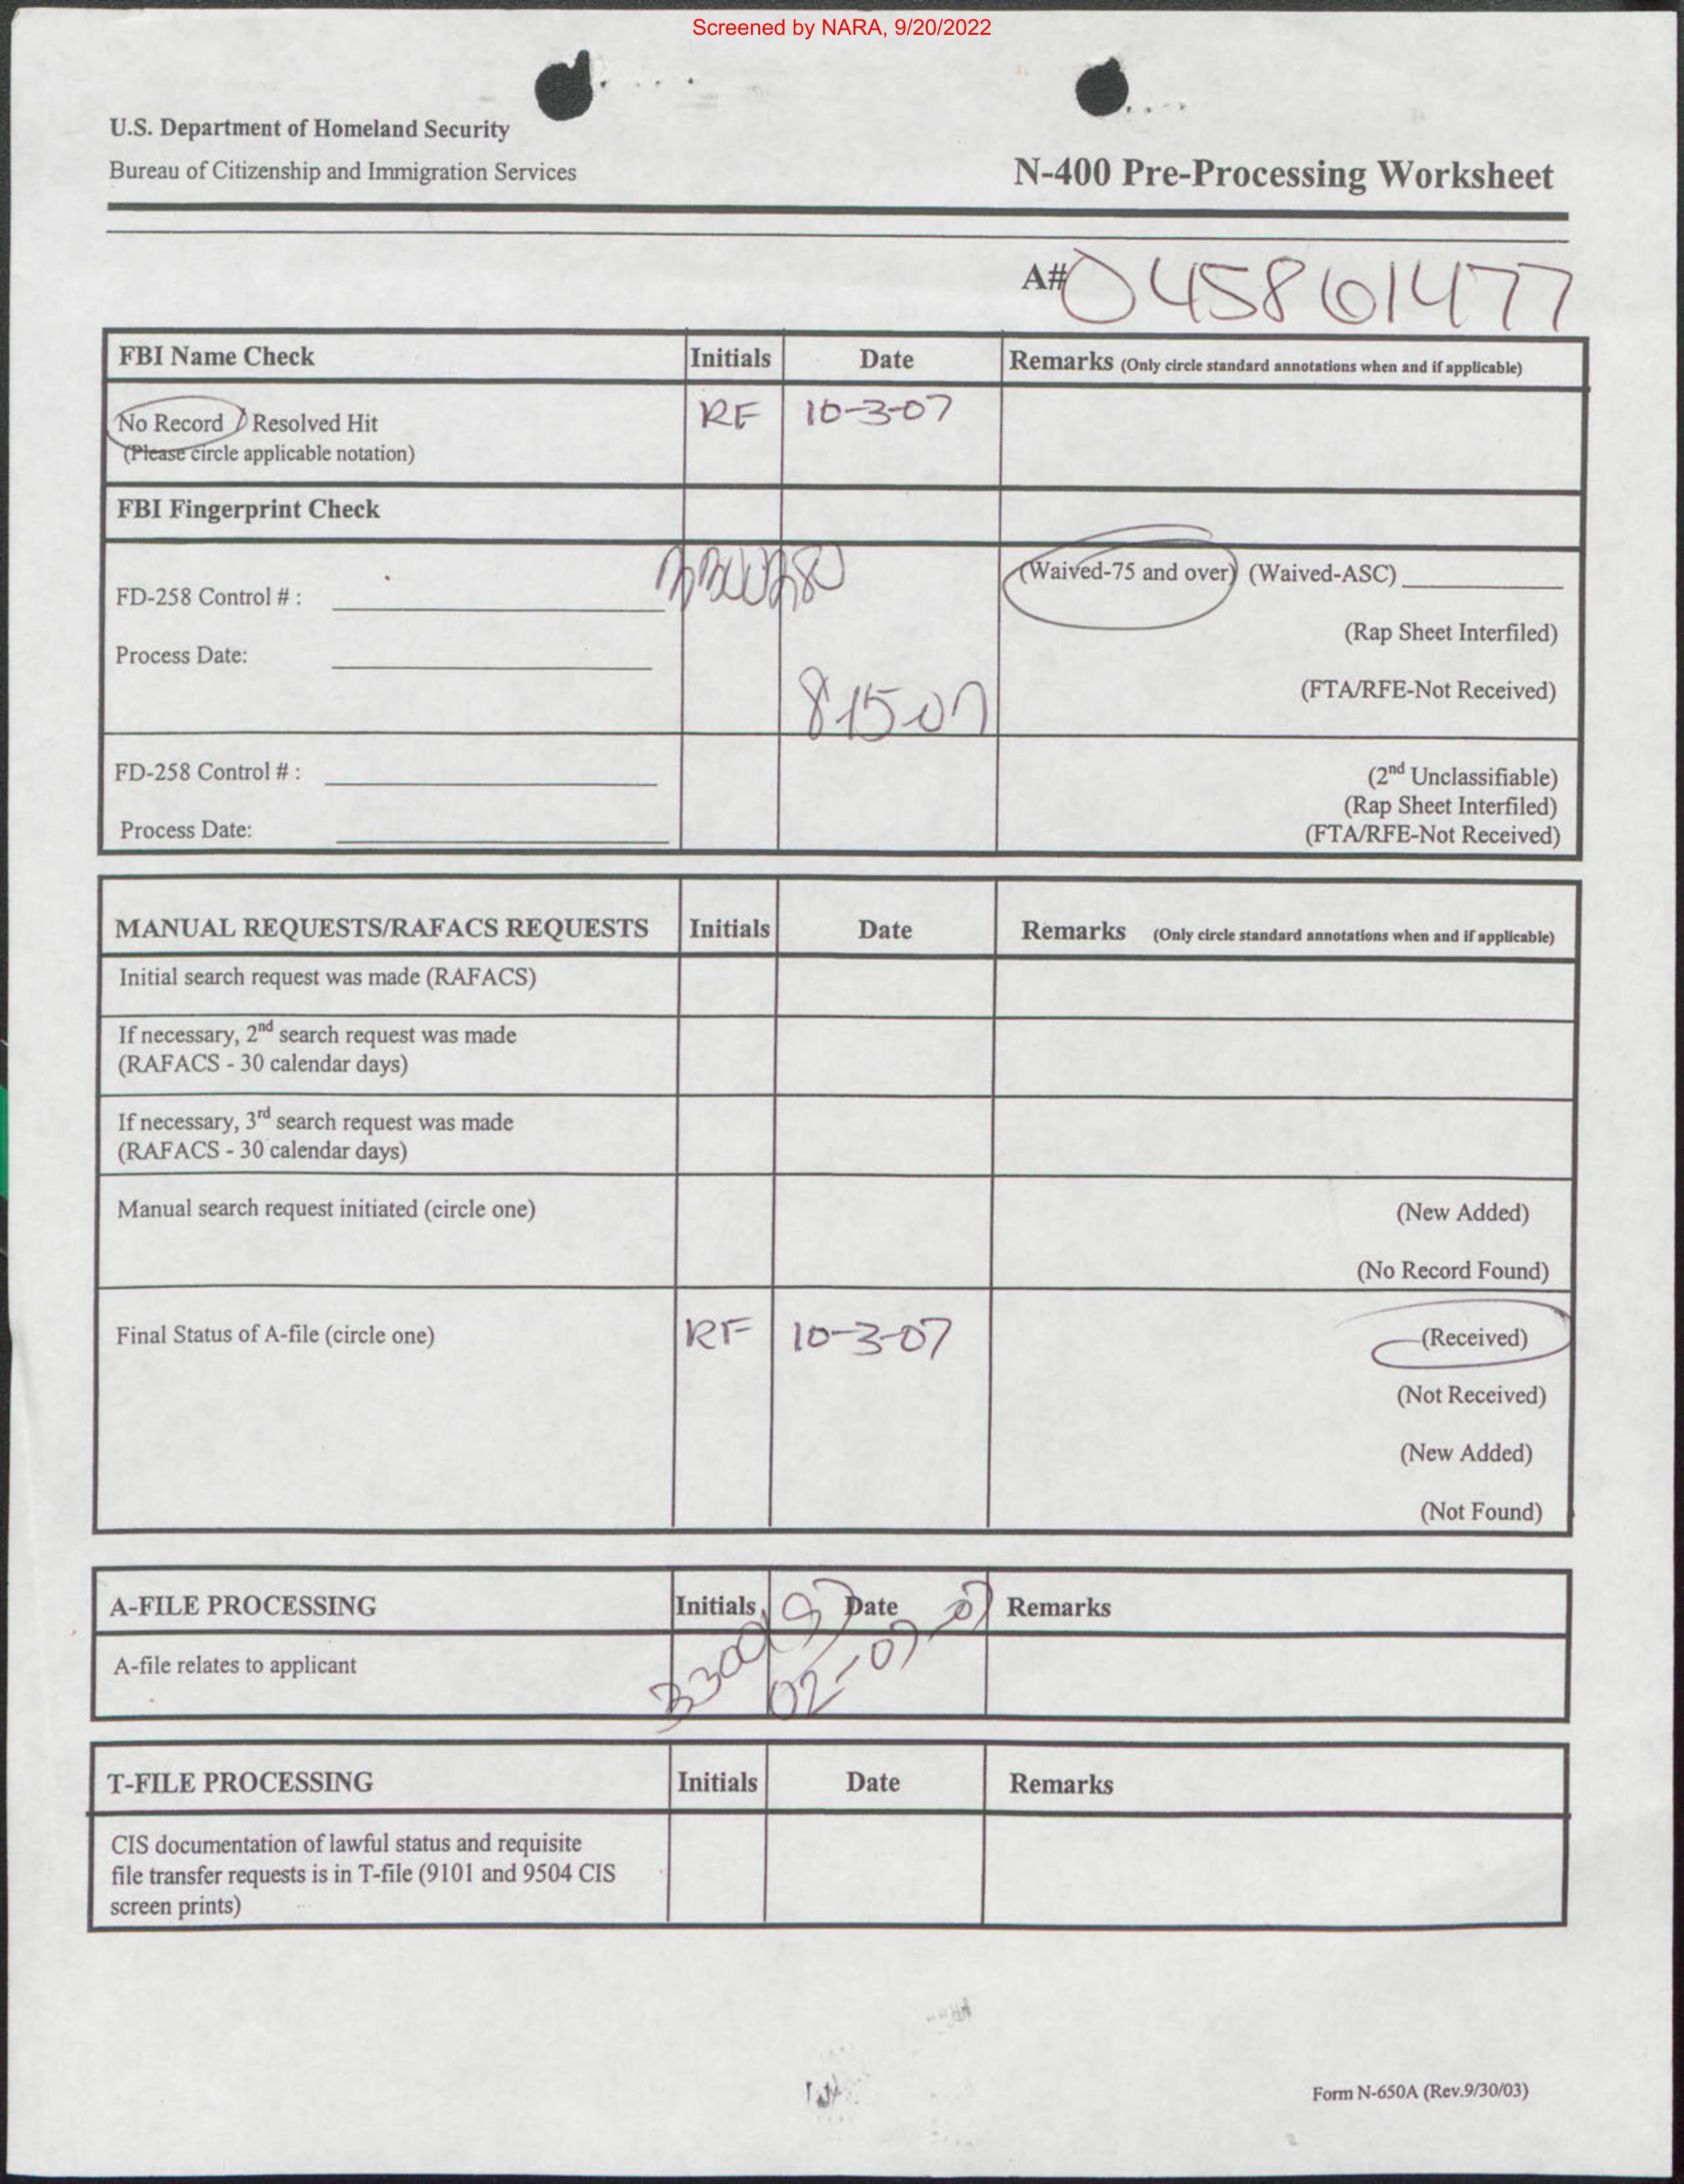 Screened by NARA, 9/20/2022
U.S. Department of Homeland Security
Bureau of Citizenship and Immigration Services
N-400 Pre-Processing Worksheet
A# 045861477
FBI Name Check Initials Date Remarks (Only circle standard annotations when and if applicable)
No Record / Resolved Hit RF 10-3-07
(Please circle applicable notation)
FBI Fingerprint Check
(Waived-75 and over) (Waived-ASC)
FD-258 Control # :
(Rap Sheet Interfiled)
Process Date:
(FTA/RFE-Not Received)
8-15-07
FD-258 Control # :
(2nd Unclassifiable)
(Rap Sheet Interfiled)
Process Date:
(FTA/RFE-Not Received)
MANUAL REQUESTS/RAFACS REQUESTS Initials Date Remarks (Only circle standard annotations when and if applicable)
Initial search request was made (RAFACS)
If necessary, 2nd search request was made
(RAFACS - 30 calendar days)
If necessary, 3rd search request was made
(RAFACS - 30 calendar days)
Manual search request initiated (circle one) (New Added)
(No Record Found)
Final Status of A-file (circle one) RF 10-3-07 (Received)
(Not Received)
(New Added)
(Not Found)
A-FILE PROCESSING Initials Date Remarks
A-file relates to applicant
02-07-07
T-FILE PROCESSING Initials Date Remarks
CIS documentation of lawful status and requisite
file transfer requests is in T-file (9101 and 9504 CIS
screen prints)
Form N-650A (Rev.9/30/03)